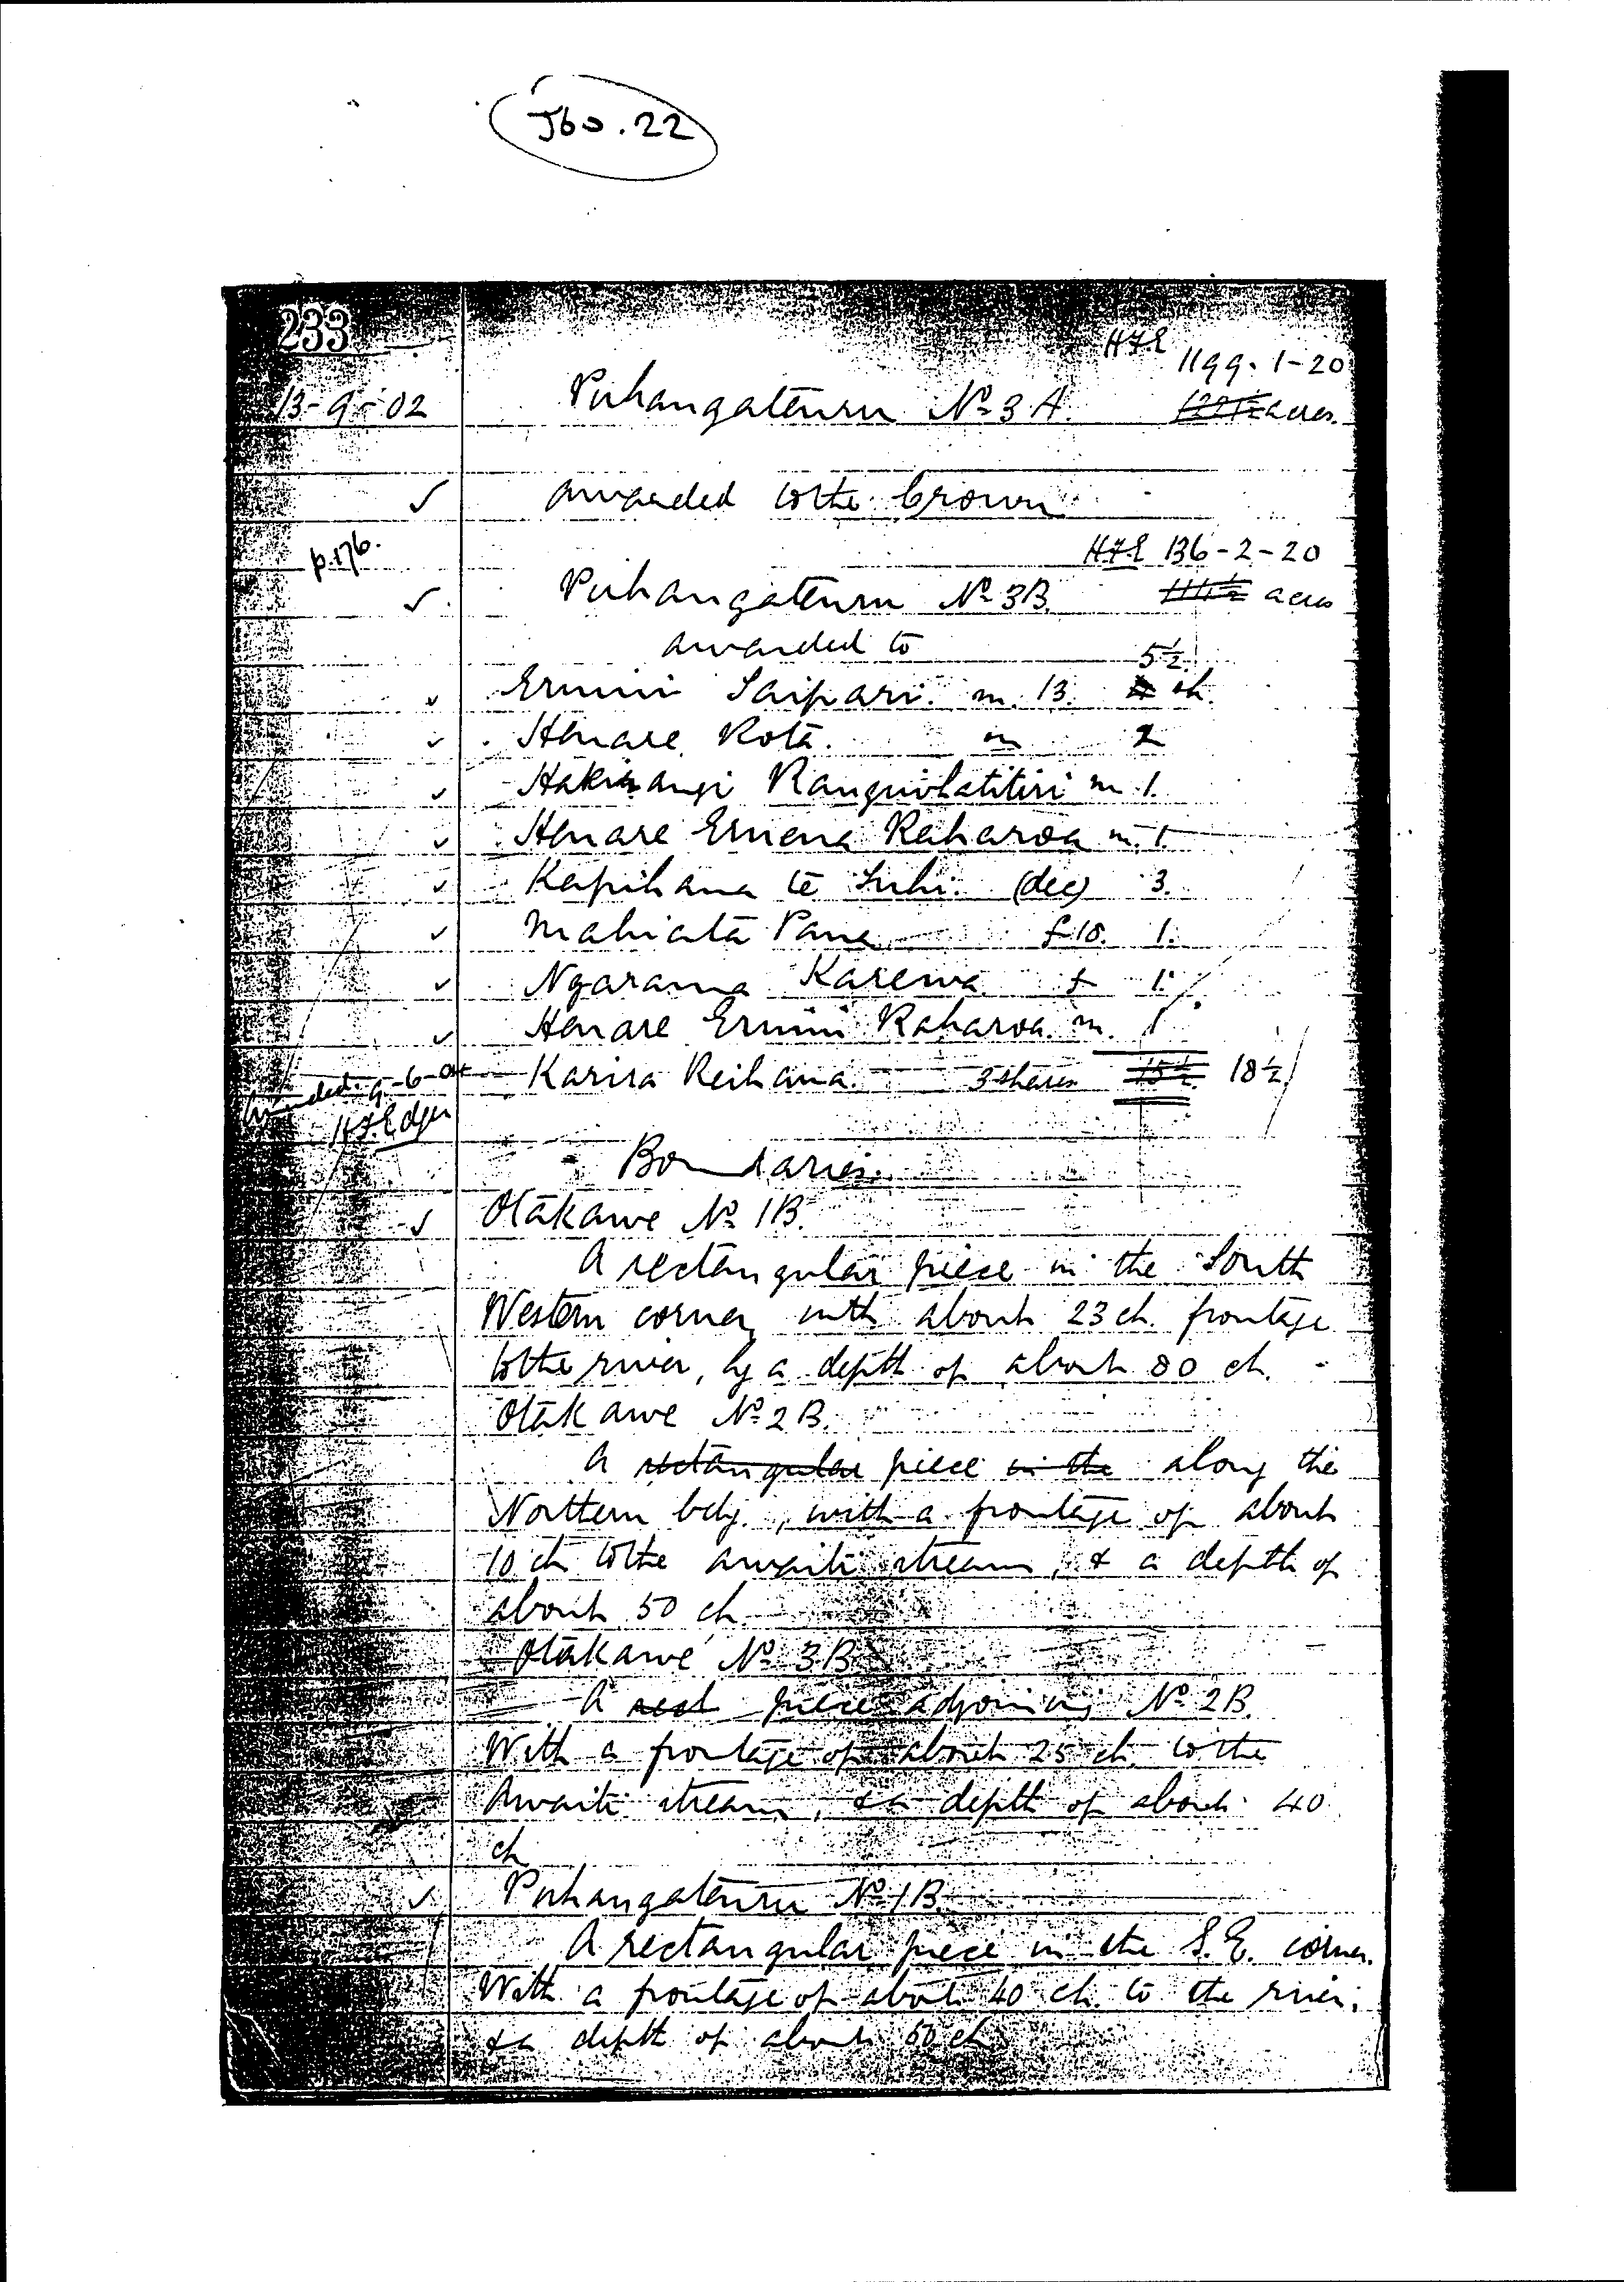 J60.22
233
H.F.E 1199-1-20
13-9-02 Puhangateuru No 3A. acres.
✓ awarded to the Crown
p.176.
H.F.E 136-2-20
✓ Puhangateuru No 3B acres
awarded to
5½
✓ Erueni Taipari. m. 13. sh.
✓ Henare Rota. m 2
✓ Hakiriangi m 1.
✓ Henare Eruena Raharoa m. 1.
✓ Kapihana te Tuhi. (dec) 3.
✓ Mahiata Pana f 18. 1.
✓ Ngarama Karewa f 1.
✓ Henare Erueni Raharoa m. 1
Amended 9-6-04 Karira Reihana. 3 shares 15½ 18½
H.F. Edger
Boundaries.
✓ Otakawe No 1B.
A rectangular piece in the South
Western corner, with about 23 ch. frontage
to the river, by a depth of about 80 ch.
Otakawe No 2B.
A rectangular piece in the along the
Northern bdy., with a frontage of about
10 ch to the Awaiti stream, & a depth of
about 50 ch
Otakawe No 3B
A rect piece adjoining No 2B.
With a frontage of about 25 ch. to the
Awaiti stream, & a depth of about 40
ch
✓ Puhangateuru No 1B.
A rectangular piece in the S.E. corner.
With a frontage of about 40 ch. to the river,
& a depth of about 50 ch